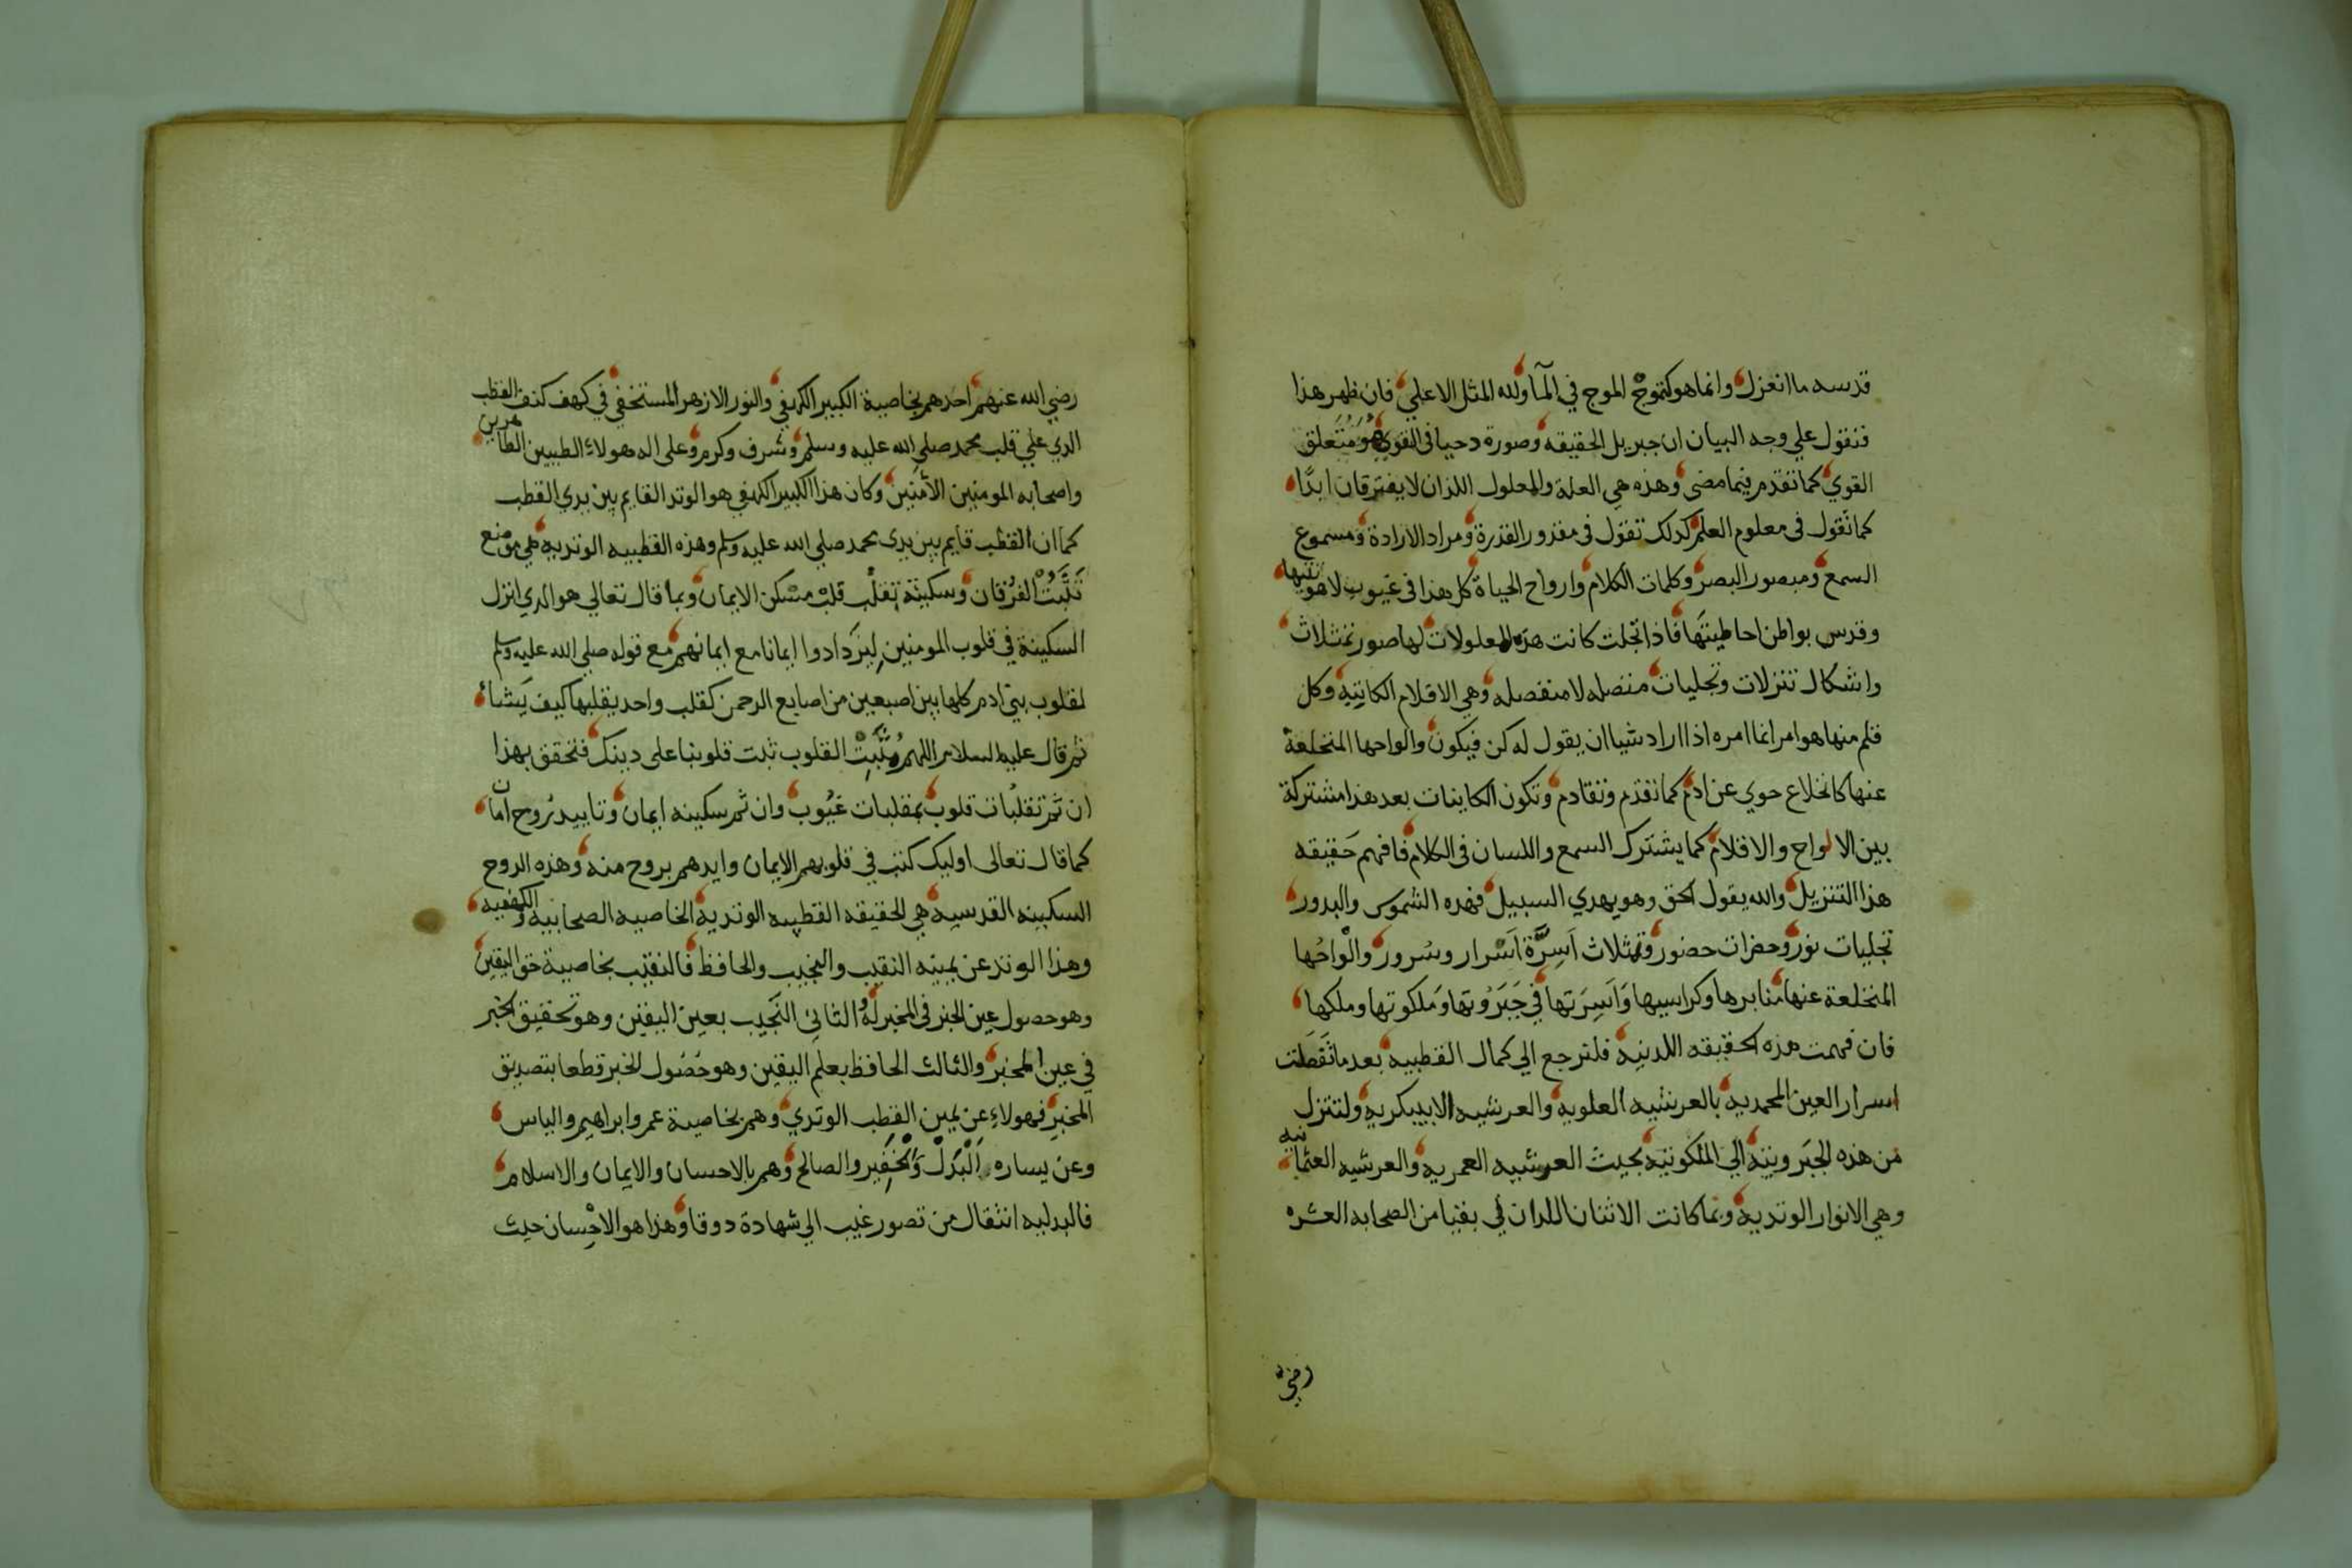 قدسه ما انعزل وانما هو كتموج الموج في المآ ولله المثل الاعلي فان ظهر هذا
فنقول علي وجه البيان ان جبريل الحقيقه وصورة دحيا في القوي هو متعلق
القوي كما تقدم فيما مضي وهذه هي العلة والمعلول اللذان لا يفترقان ابدًا
كما نقول في معلوم العلم كذلك تقول في مقدور القدرة ومراد الارادة ومسموع
السمع ومبصور البصر وكلمات الكلام وارواح الحياة كل هذا في غيوب لاهوتيتها
وقدس بواطن احاطيتها فاذا تجلت كانت هذه المعلولات لها صور تمثلات
واشكال تنزلات وتجليات متصله لا منفصله وهي الاقلام الكاتبه وكل
قلم منها هو امر انما امره اذا اراد شيا ان يقول له كن فيكون والواحها المنخلعة
عنها كانخلاع حوي عن ادم كما تقدم وتقادم وتكون الكاينات بعد هذا مشتركة
بين الالواح والاقلام كما يشترك السمع واللسان في الكلام فافهم حقيقه
هذا التنزيل والله يقول الحق وهو يهدي السبيل فهذه الشموس والبدور
تجليات نور وحضرات حضور وتمثلات اسرّة اسرار وسرور والواحها
المنخلعة عنها منابرها وكراسيها واسرتها في جبروتها وملكوتها وملكها
فان فهمت هذه الحقيقه اللدنيه فلترجع الي كمال القطبيه بعد ما تقصلت
اسرار العين المحمديه بالعرشيه العلويه والعرشيه الابيبكريه ولتتنزل
من هذه الجبروتيه الي الملكوتيه بحيث العرشيه العمريه والعرشيه العثمانيه
وهي الانوار الوتديه وبما كانت الاثنان اللدان في بقيا من الصحابه العشره
رضي
رضي الله عنهم احدهم بخاصية الكبير الكهفي والنور الازهر المستخفي في كهف كنف القطب
الدي علي قلب محمد صلي الله عليه وسلم وشرف وكرم وعلي اله هولاء الطيبين الطاهرين
واصحابه المومنين الآمنين وكان هذا الكبير الكهفي هو الوتد القايم بين يدي القطب
كما ان القطب قايم بين يدي محمد صلي الله عليه وسلم وهذه القطبيه الوتديه هي موضع
تثبت الفرقان وسكينة تقلب قلب مسكن الايمان وبما قال تعالي هو الدي انزل
السكينة في قلوب المومنين ليزدادوا ايمانا مع ايمانهم مع قوله صلي الله عليه وسلم
لقلوب بني ادم كلها بين اصبعين من اصابع الرحمن كقلب واحد يقلبها كيف يشأ
ثم قال عليه السلام اللهم مثبت القلوب ثبت قلوبنا على دينك فتحقق بهذا
ان ثم تقلبات قلوب بمقلبات غيوب وان ثم سكينه ايمان وتاييد روح امان
كما قال تعالى اوليك كتب في قلوبهم الايمان وايدهم بروح منه وهذه الروح
السكينه القدسيه هي الحقيقه القطبيه الوتديه الخاصيه الصحابيه والكهفيه
وهذا الوتد عن يمينه النقيب والنجيب والحافظ فالنقيب بخاصية حق اليقين
وهو حصول عين الخبر في المخبر له الثاني النجيب بعين اليقين وهو تحقيق الخبر
في عين المخبر والثالث الحافظ بعلم اليقين وهو حصول الخبر قطعا بتصديق
المخبر فهولاء عن يمين القطب الوتدي وهم بخاصية عمر وابراهيم والياس
وعن يساره البدل والخفير والصالح وهم بالاحسان والايمان والاسلام
فالبدليه انتقال من تصور غيب الي شهادة دوقا وهذا هو الاحسان حيث